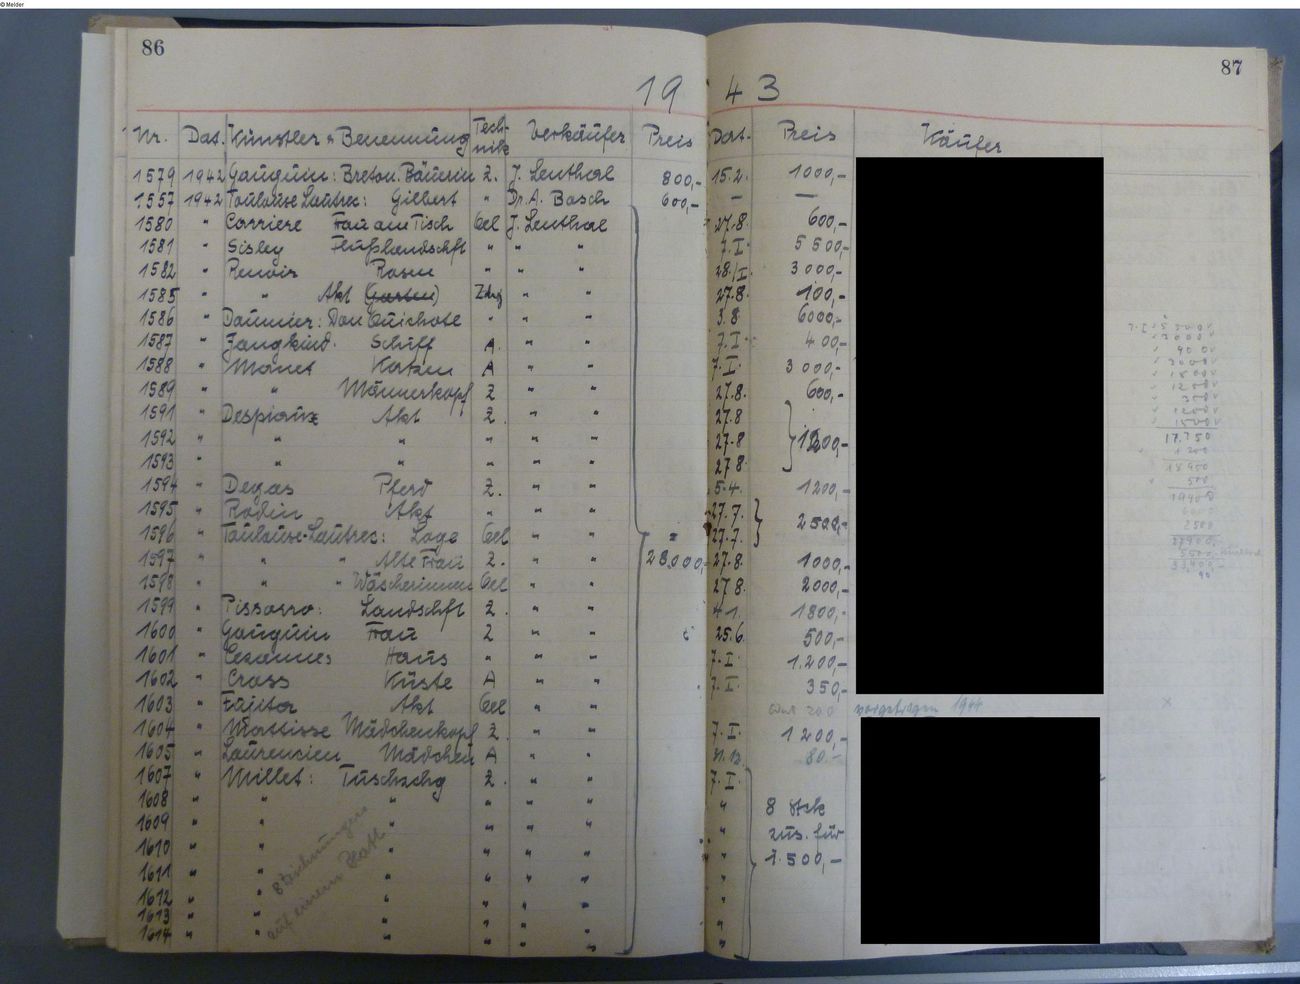 © Melder
86
87
19 43
Nr. Dat. Künstler u Benennung Tech-nik Verkäufer Preis Dat. Preis Käufer
1579 1942 Gauguin: Breton. Bäuerin Z. J. Lenthal 800,- 15.2. 1000,-
1557 1942 Toulouse Lautrec: Gilbert " Dr. A. Basch 600,- — —
1580 " Carriere Frau am Tisch Oel J. Lenthal 27.8. 600,-
1581 " Sisley Flußlandschft " " " 7.I. 5500,-
1582 " Renoir Rosen " " " 28./I. 3000,-
1585 " " Akt (Garten) Zchg " " 27.8. 100,-
1586 " Daumier: Don Quichote " " " 3.8. 6000,-
1587 " Jongkind. Schiff A. " " 7.I. 400,-
1588 " Manet Katzen A " " 7.I. 3000,-
1589 " " Männerkopf Z " " 27.8. 600,-
1591 " Despiaux Akt Z. " " 27.8
1592 " " " " " " 27.8 1200,-
1593 " " " " " " 27.8
1594 " Degas Pferd Z. " " 5.4. 1200,-
1595 " Rodin Akt " " " 27.7. 2500,-
1596 " Toulouse-Lautrec: Loge Oel " " 27.7.
1597 " " " Alte Frau Z. " " 23.000,- 27.8. 1000,-
1598 " " " Wäscherinnen Oel " " 27.8. 2000,-
1599 " Pissarro: Landschft Z. " " 4.1. 1800,-
1600 " Gauguin Frau Z " " 25.6. 500,-
1601 " Cezannes Haus " " " 7.I. 1.200,-
1602 " Cross Küste A " " 7.I. 350,-
1603 " Akt Oel " " 200 vorgetragen 1944 x
1604 " Mattisse Mädchenkopf Z. " " 7.I. 1200,-
1605 " Laurencien Mädchen A " " 80.-
1607 " Millet: Tuschzchg Z. " " 7.I.
1608 " " " " " " " 8 Stck
1609 " " " " " " " zus. für
1610 " " " " " " " 1.500,-
1611 " " " " " " "
1612 " " " " " " "
1613 " " " " " " "
1614 " " " " " " "
8 Zeichnungen
auf einem Blatt
17.750